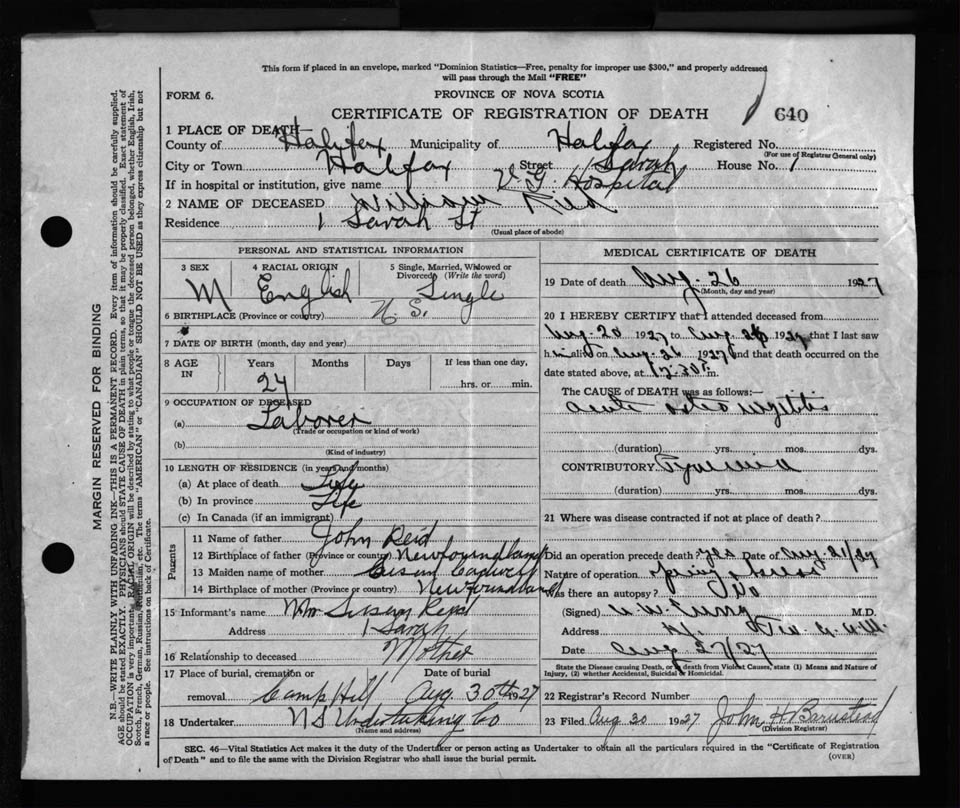 This form if placed in an envelope, marked "Dominion Statistics—Free, penalty for improper use $300," and properly addressed
will pass through the Mail "FREE"
FORM 6.
PROVINCE OF NOVA SCOTIA
CERTIFICATE OF REGISTRATION OF DEATH
640
1 PLACE OF DEATH—
County of Halifax Municipality of Halifax Registered No.
(For use of Registrar General only)
City or Town Halifax Street Sarah House No. 1
If in hospital or institution, give name V G. Hospital
2 NAME OF DECEASED William Reid
Residence 1 Sarah St
(Usual place of abode)
PERSONAL AND STATISTICAL INFORMATION
3 SEX M
4 RACIAL ORIGIN English
5 Single, Married, Widowed or Divorced (Write the word) Single
6 BIRTHPLACE (Province or country) N. S.
7 DATE OF BIRTH (month, day and year)
8 AGE IN Years Months Days If less than one day, hrs. or min.
24
9 OCCUPATION OF DECEASED
(a) Laborer
(Trade or occupation or kind of work)
(b)
(Kind of industry)
10 LENGTH OF RESIDENCE (in years and months)
(a) At place of death Life
(b) In province Life
(c) In Canada (if an immigrant)
Parents
11 Name of father John Reid
12 Birthplace of father (Province or country) Newfoundland
13 Maiden name of mother Susan
14 Birthplace of mother (Province or country) Newfoundland
15 Informant's name Susan Reid
Address 1 Sarah
16 Relationship to deceased Mother
17 Place of burial, cremation or removal Camp Hill Date of burial Aug. 30th 1927
18 Undertaker N S Undertaking Co
(Name and address)
MEDICAL CERTIFICATE OF DEATH
19 Date of death Aug. 26 1927
(Month, day and year)
20 I HEREBY CERTIFY that I attended deceased from
Aug. 20 1927 to Aug. 26 1927 that I last saw
h im alive on Aug. 26 1927 and that death occurred on the
date stated above, at 12.30 P. m.
The CAUSE of DEATH was as follows:—
acute osteo myelitis
(duration) yrs. mos. dys.
CONTRIBUTORY Pyaemia
(duration) yrs. mos. dys.
21 Where was disease contracted if not at place of death?
Did an operation precede death? Yes Date of Aug. 21/27
Nature of operation
Was there an autopsy? No
(Signed) M.D.
Address
Date Aug 27/27
State the Disease causing Death, or in death from Violent Causes, state (1) Means and Nature of
Injury, (2) whether Accidental, Suicidal or Homicidal.
22 Registrar's Record Number
23 Filed Aug 30 1927 John H Barnstead
(Division Registrar)
SEC. 46—Vital Statistics Act makes it the duty of the Undertaker or person acting as Undertaker to obtain all the particulars required in the "Certificate of Registration
of Death" and to file the same with the Division Registrar who shall issue the burial permit.
(OVER)
MARGIN RESERVED FOR BINDING
N.B.—WRITE PLAINLY WITH UNFADING INK—THIS IS A PERMANENT RECORD. Every item of information should be carefully supplied.
AGE should be stated EXACTLY. PHYSICIANS should STATE CAUSE OF DEATH in plain terms, so that it may be properly classified. Exact statement of
OCCUPATION is very important. RACIAL ORIGIN will be described by stating to what people or tongue the deceased person belonged, whether English, Irish,
Scotch, French, German, Russian, Ruthenian, etc. The terms "AMERICAN" or "CANADIAN" SHOULD NOT BE USED as they express citizenship but not
a race or people. See instructions on back of Certificate.